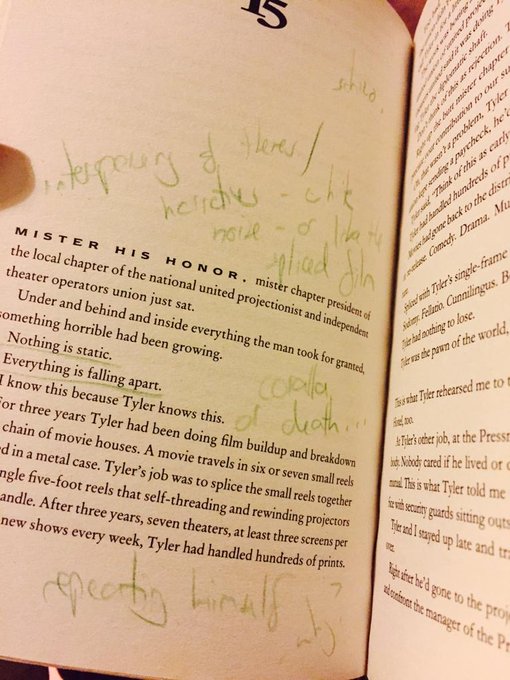 15
schizo.
interspersing of themes /
narratives - white
noise - or like the
spliced film
MISTER HIS HONOR, mister chapter president of
the local chapter of the national united projectionist and independent
theater operators union just sat.
Under and behind and inside everything the man took for granted,
something horrible had been growing.
Nothing is static.
Everything is falling apart.
I know this because Tyler knows this.
For three years Tyler had been doing film buildup and breakdown
chain of movie houses. A movie travels in six or seven small reels
ed in a metal case. Tyler's job was to splice the small reels together
ngle five-foot reels that self-threading and rewinding projectors
andle. After three years, seven theaters, at least three screens per
new shows every week, Tyler had handled hundreds of prints.
of death...
repeating himself
why
diplomatic shaft.
think of this as rejection. T
the butt mister chapter
contribution to our su
that wasn't a problem, Tyler
kept sending a paycheck, he'd
Tyler said, "Think of this as early
Tyler had handled hundreds of p
Movies had gone back to the distri
re-release. Comedy. Drama. Mu
Spliced with Tyler's single-frame
Sodomy. Fellatio. Cunnilingus. B
Tyler had nothing to lose.
Tyler was the pawn of the world,
This is what Tyler rehearsed me to
too.
At Tyler's other job, at the Pressm
body. Nobody cared if he lived or d
mutual. This is what Tyler told me
with security guards sitting outs
Tyler and I stayed up late and tra
over.
Right after he'd gone to the proj
and confront the manager of the Pr